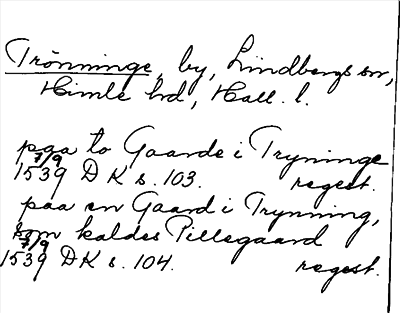 Trönninge, by, Lindbergs sn,
Himle hd, Hall. l.
paa to Gaarde i Tryninge
7/9
1539 DK s. 103. regest.
paa en Gaard i Trynning,
som kaldes Pillegaard
7/9
1539 DK s. 104. regest.